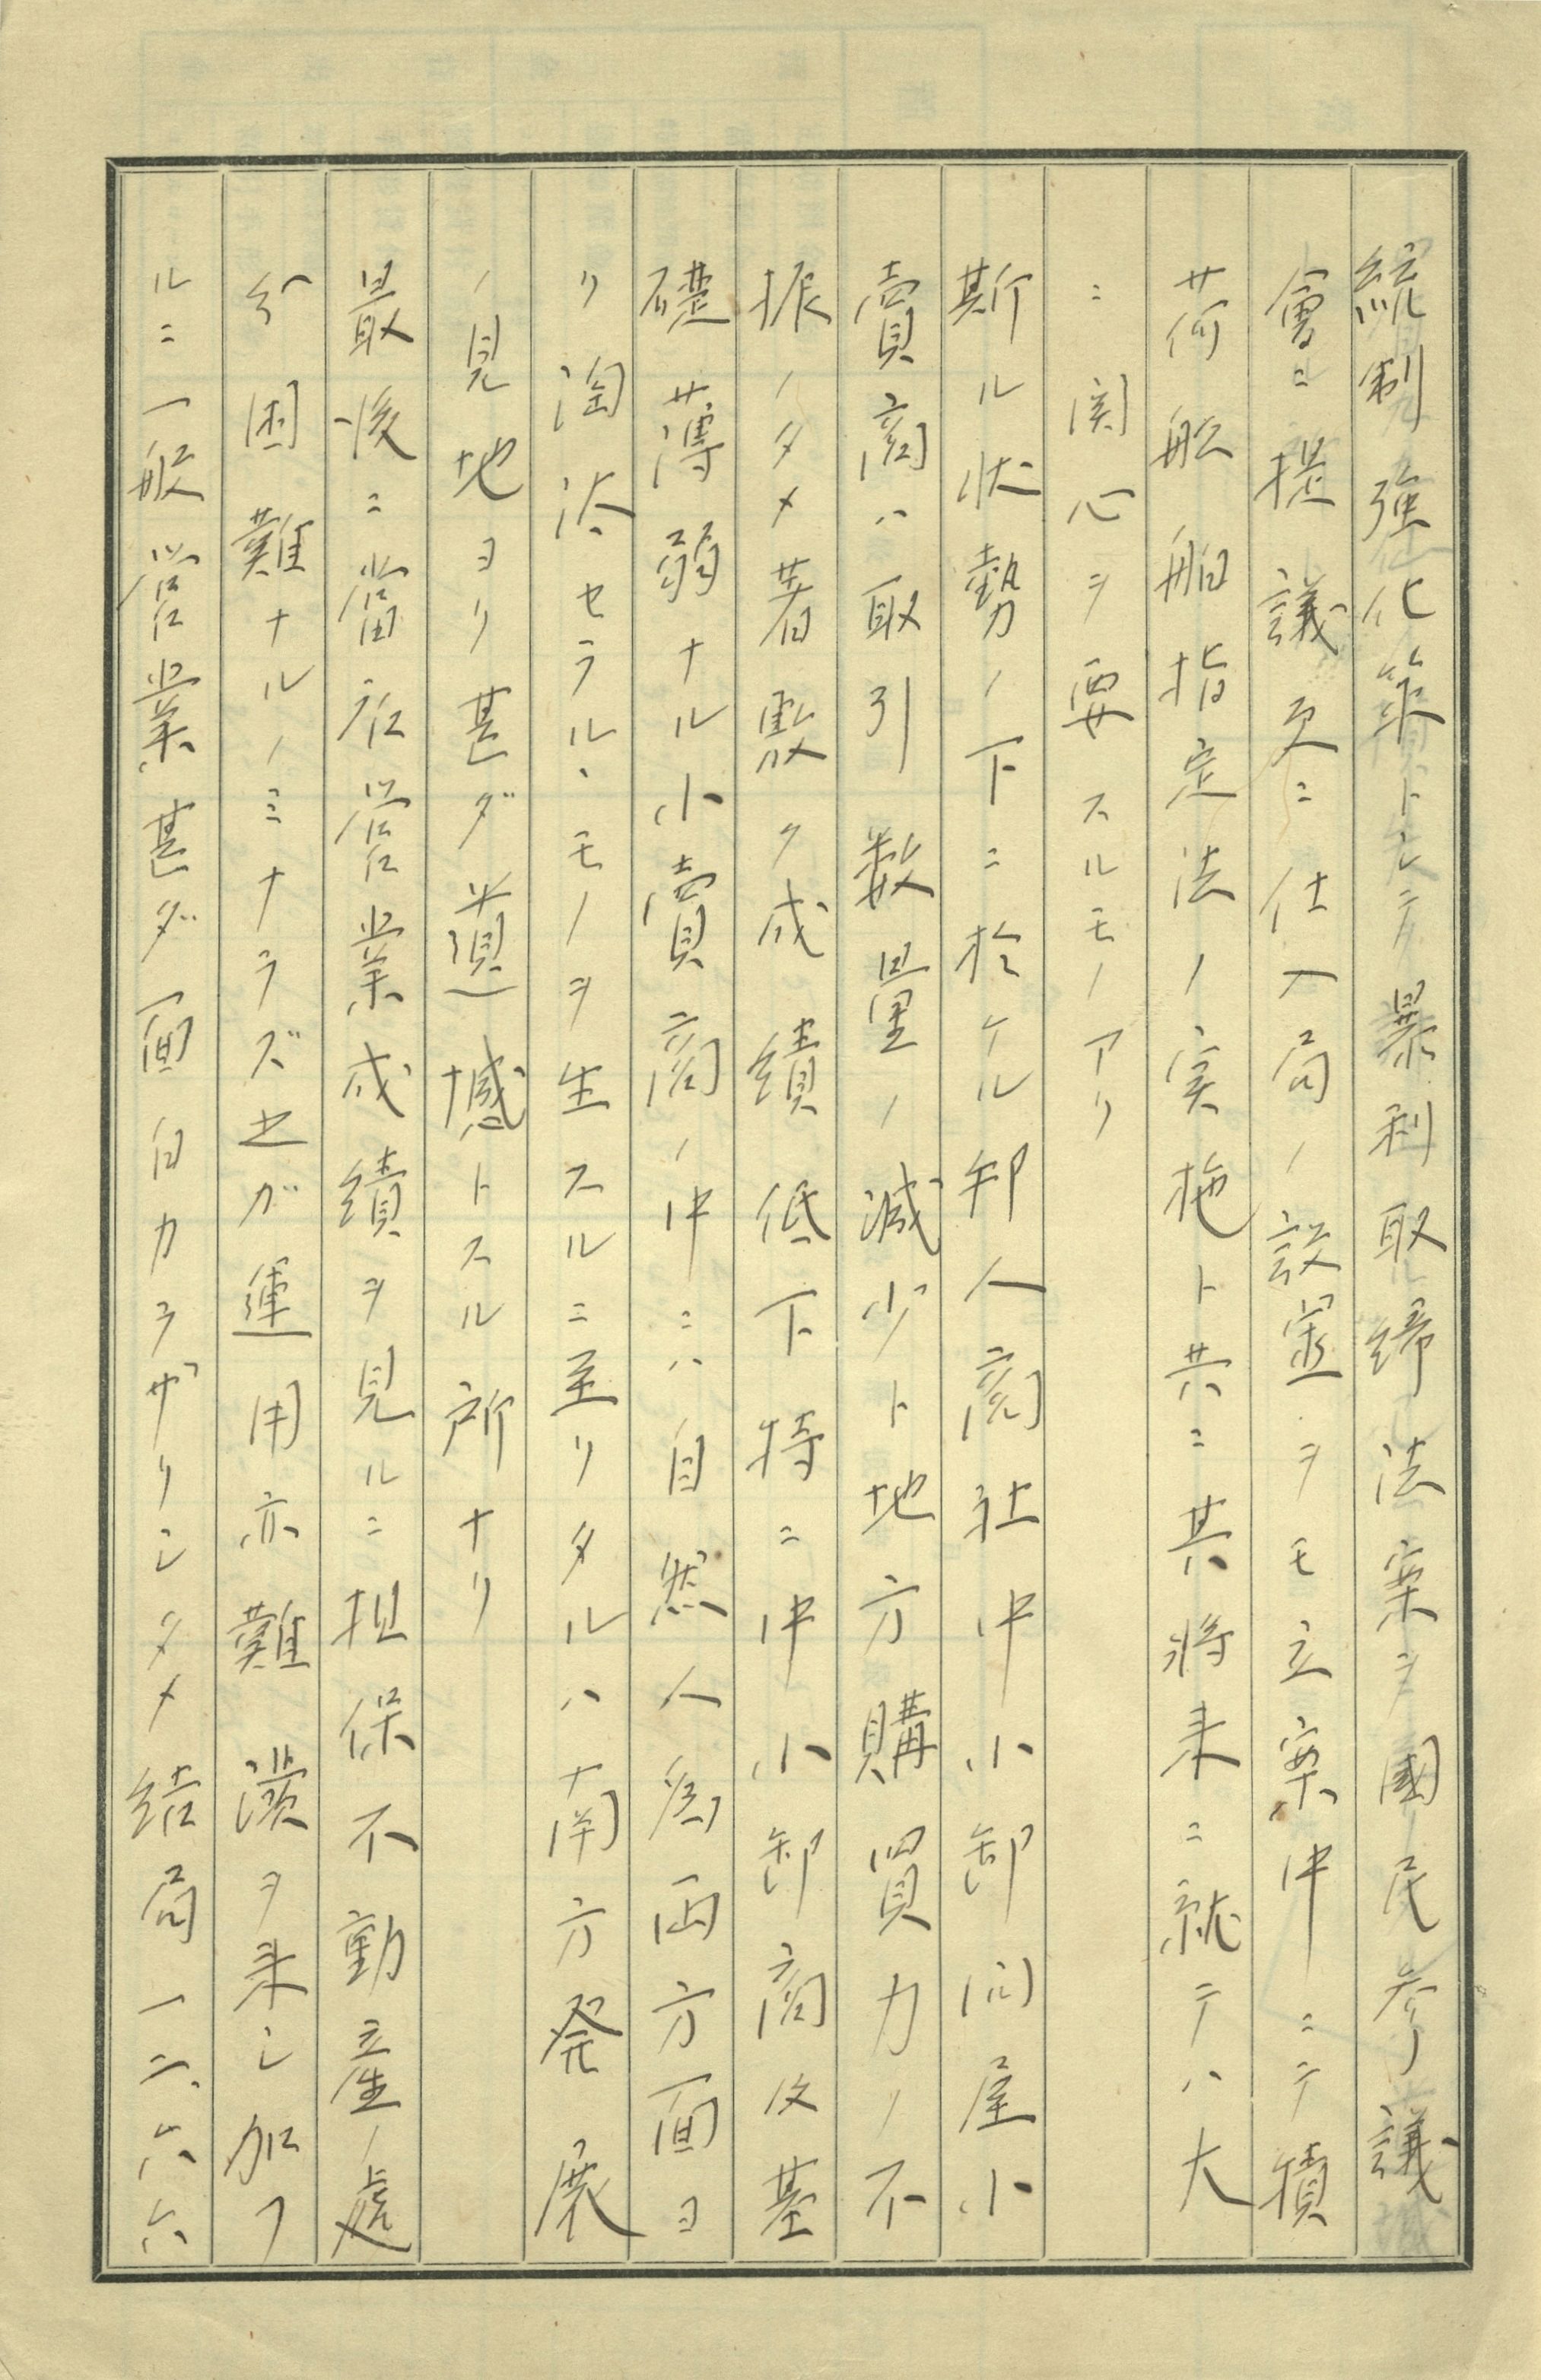 統制強化策トシテ暴利取締法案ヲ國民参議
會ニ提議更ニ仕入局ノ設置ヲモ立案中ニテ積
荷船舶指定法ノ実施ト共ニ其将来ニ就テハ大
ニ関心ヲ要スルモノアリ
斯ル状勢ノ下ニ於ケル卸人商社中小卸問屋小
賣商ハ取引数量ノ減少ト地方購買力ノ不
振ノタメ著敷ク成績低下特ニ中小卸商及基
礎薄弱ナル小賣商ノ中ニハ自然人為両方面ヨ
リ淘汰セラルヽモノヲ生スルニ至リタルハ南方発展
ノ見地ヨリ甚ダ遺憾トスル所ナリ
最後ニ當社営業成績ヲ見ルニ担保不動産ノ處
分困難ナルノミナラズ之ガ運用亦難澁ヲ来シ加フ
ルニ一般営業甚ダ面白カラザリシタメ結局一二、六六